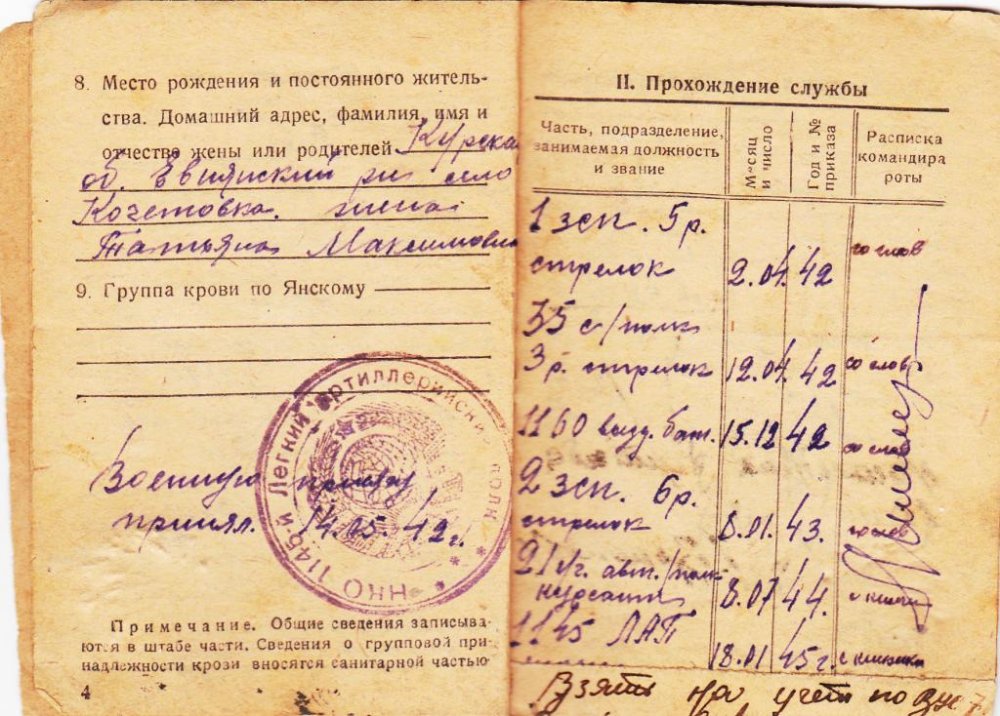 8. Место рождения и постоянного житель-
ства. Домашний адрес, фамилия, имя и
отчество жены или родителей Курская
об. село
жена
Татьяна Максимовна
9. Группа крови по Янскому
НКО 1145й Легкий артиллерийский полк
Военную
принял. 14.05.42г.
Примечание. Общие сведения записыва-
ются в штабе части. Сведения о групповой при-
надлежности крови вносятся санитарной частью
4
II. Прохождение службы
Часть, подразделение, занимаемая должность и звание
Месяц и число
Год и № приказа
Расписка командира роты
1 зсп. 5р.
стрелок 2.04. 42 со слов
35 с/полк
3р. стрелок 12.04. 42 со слов
1160 бат. 15.12 42 со слов
2 зсп. 6р.
стрелок 8.01. 43. со слов
21 авт./полк
курсант 8.07 44.
1145 ЛАП
18.01 45г. с книжки
Взять на учет по